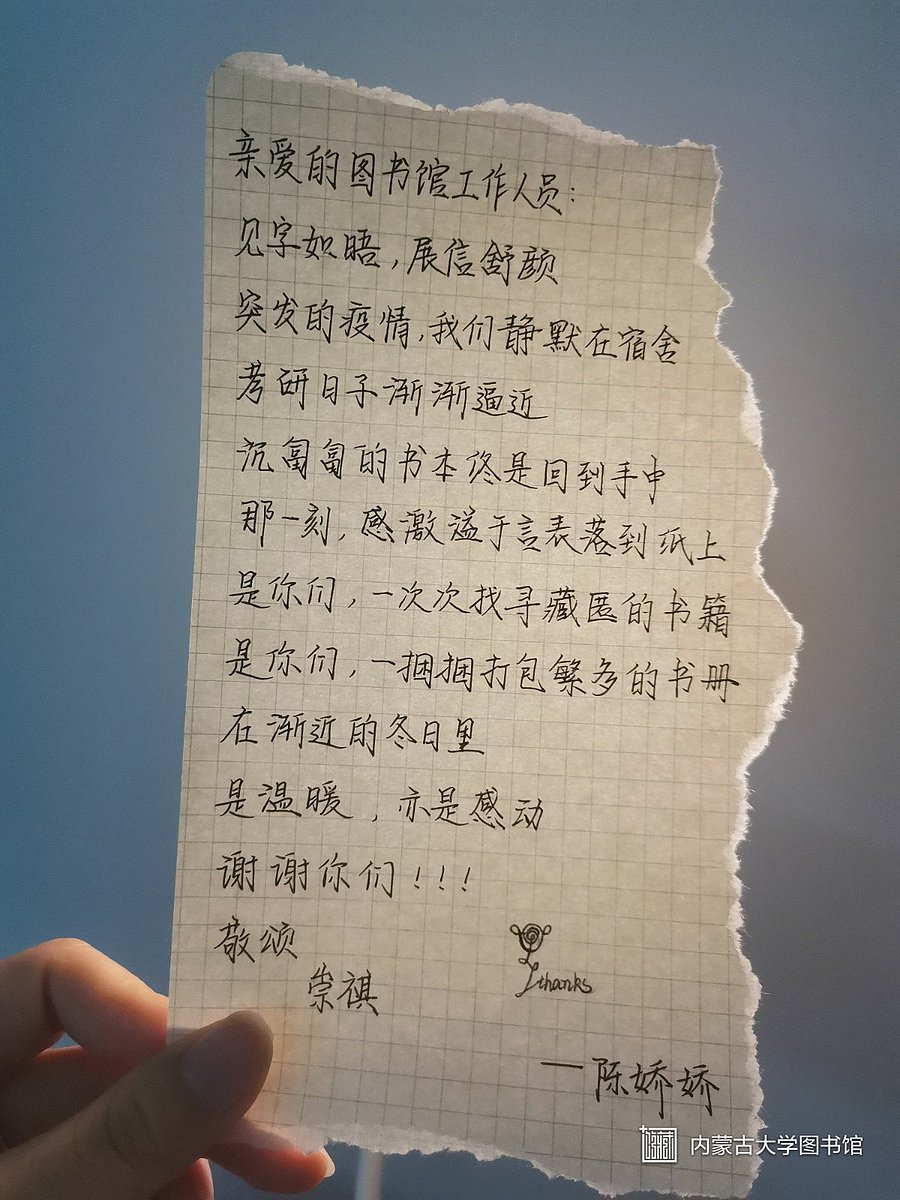 亲爱的图书馆工作人员：
见字如晤，展信舒颜
突发的疫情，我们静默在宿舍
考研日子渐渐逼近
沉甸甸的书本终是回到手中
那一刻，感激溢于言表落到纸上
是你们，一次次找寻藏匿的书籍
是你们，一捆捆打包繁多的书册
在渐近的冬日里
是温暖，亦是感动
谢谢你们！！！
敬颂
崇祺
thanks
—陈娇娇
内蒙古大学图书馆